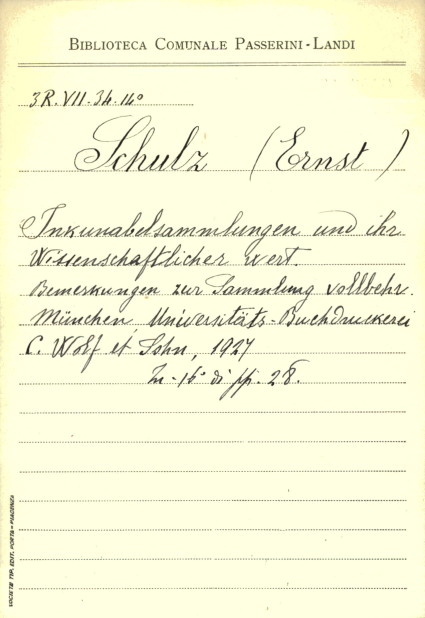 BIBLIOTECA COMUNALE PASSERINI-LANDI
3R.VII.34.14°
Schulz (Ernst)
Inkunabelsammlungen und ihr
Wissenschaftlicher wert.
Bemerkungen zur Sammlung vollbehr.
München, Universitäts-Buchdruckerei
C. Wolf et Sohn, 1927
In-16° di pp. 28.
SOCIETÀ TIP. EDIT. PORTA-PIACENZA